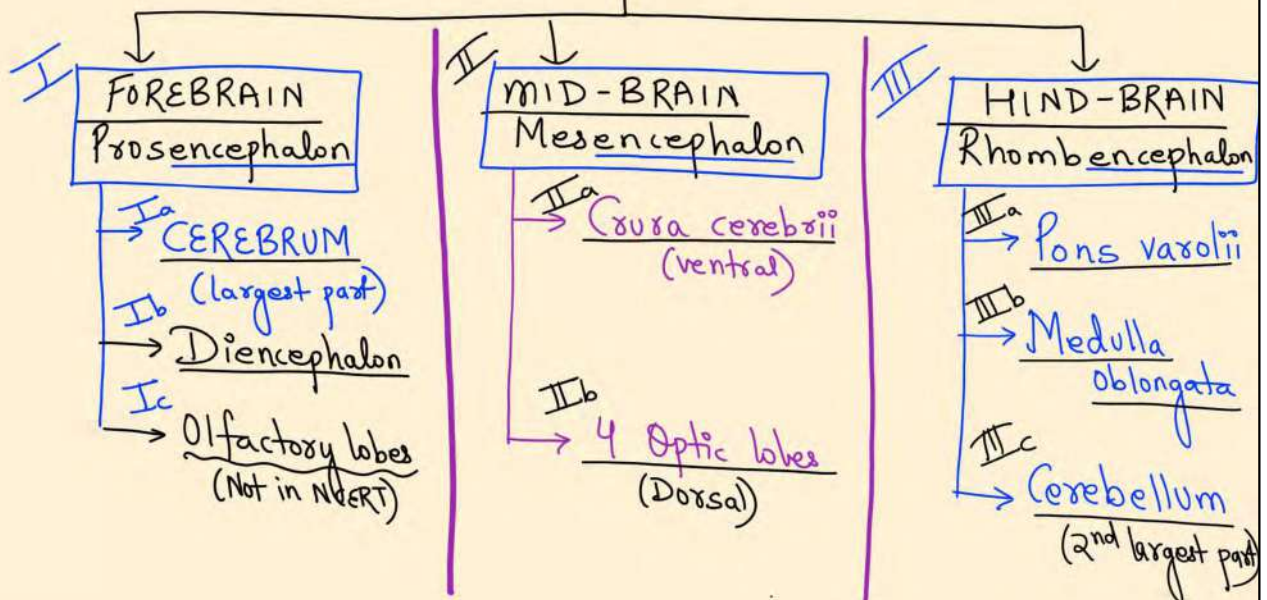 I
FOREBRAIN
Prosencephalon
Ia
CEREBRUM
(largest part)
Ib
Diencephalon
Ic
Olfactory lobes
(Not in NCERT)
II
MID-BRAIN
Mesencephalon
IIa
Crura cerebrii
(ventral)
IIb
4 Optic lobes
(Dorsal)
III
HIND-BRAIN
Rhombencephalon
IIIa
Pons varolii
IIIb
Medulla
oblongata
IIIc
Cerebellum
(2nd largest part)